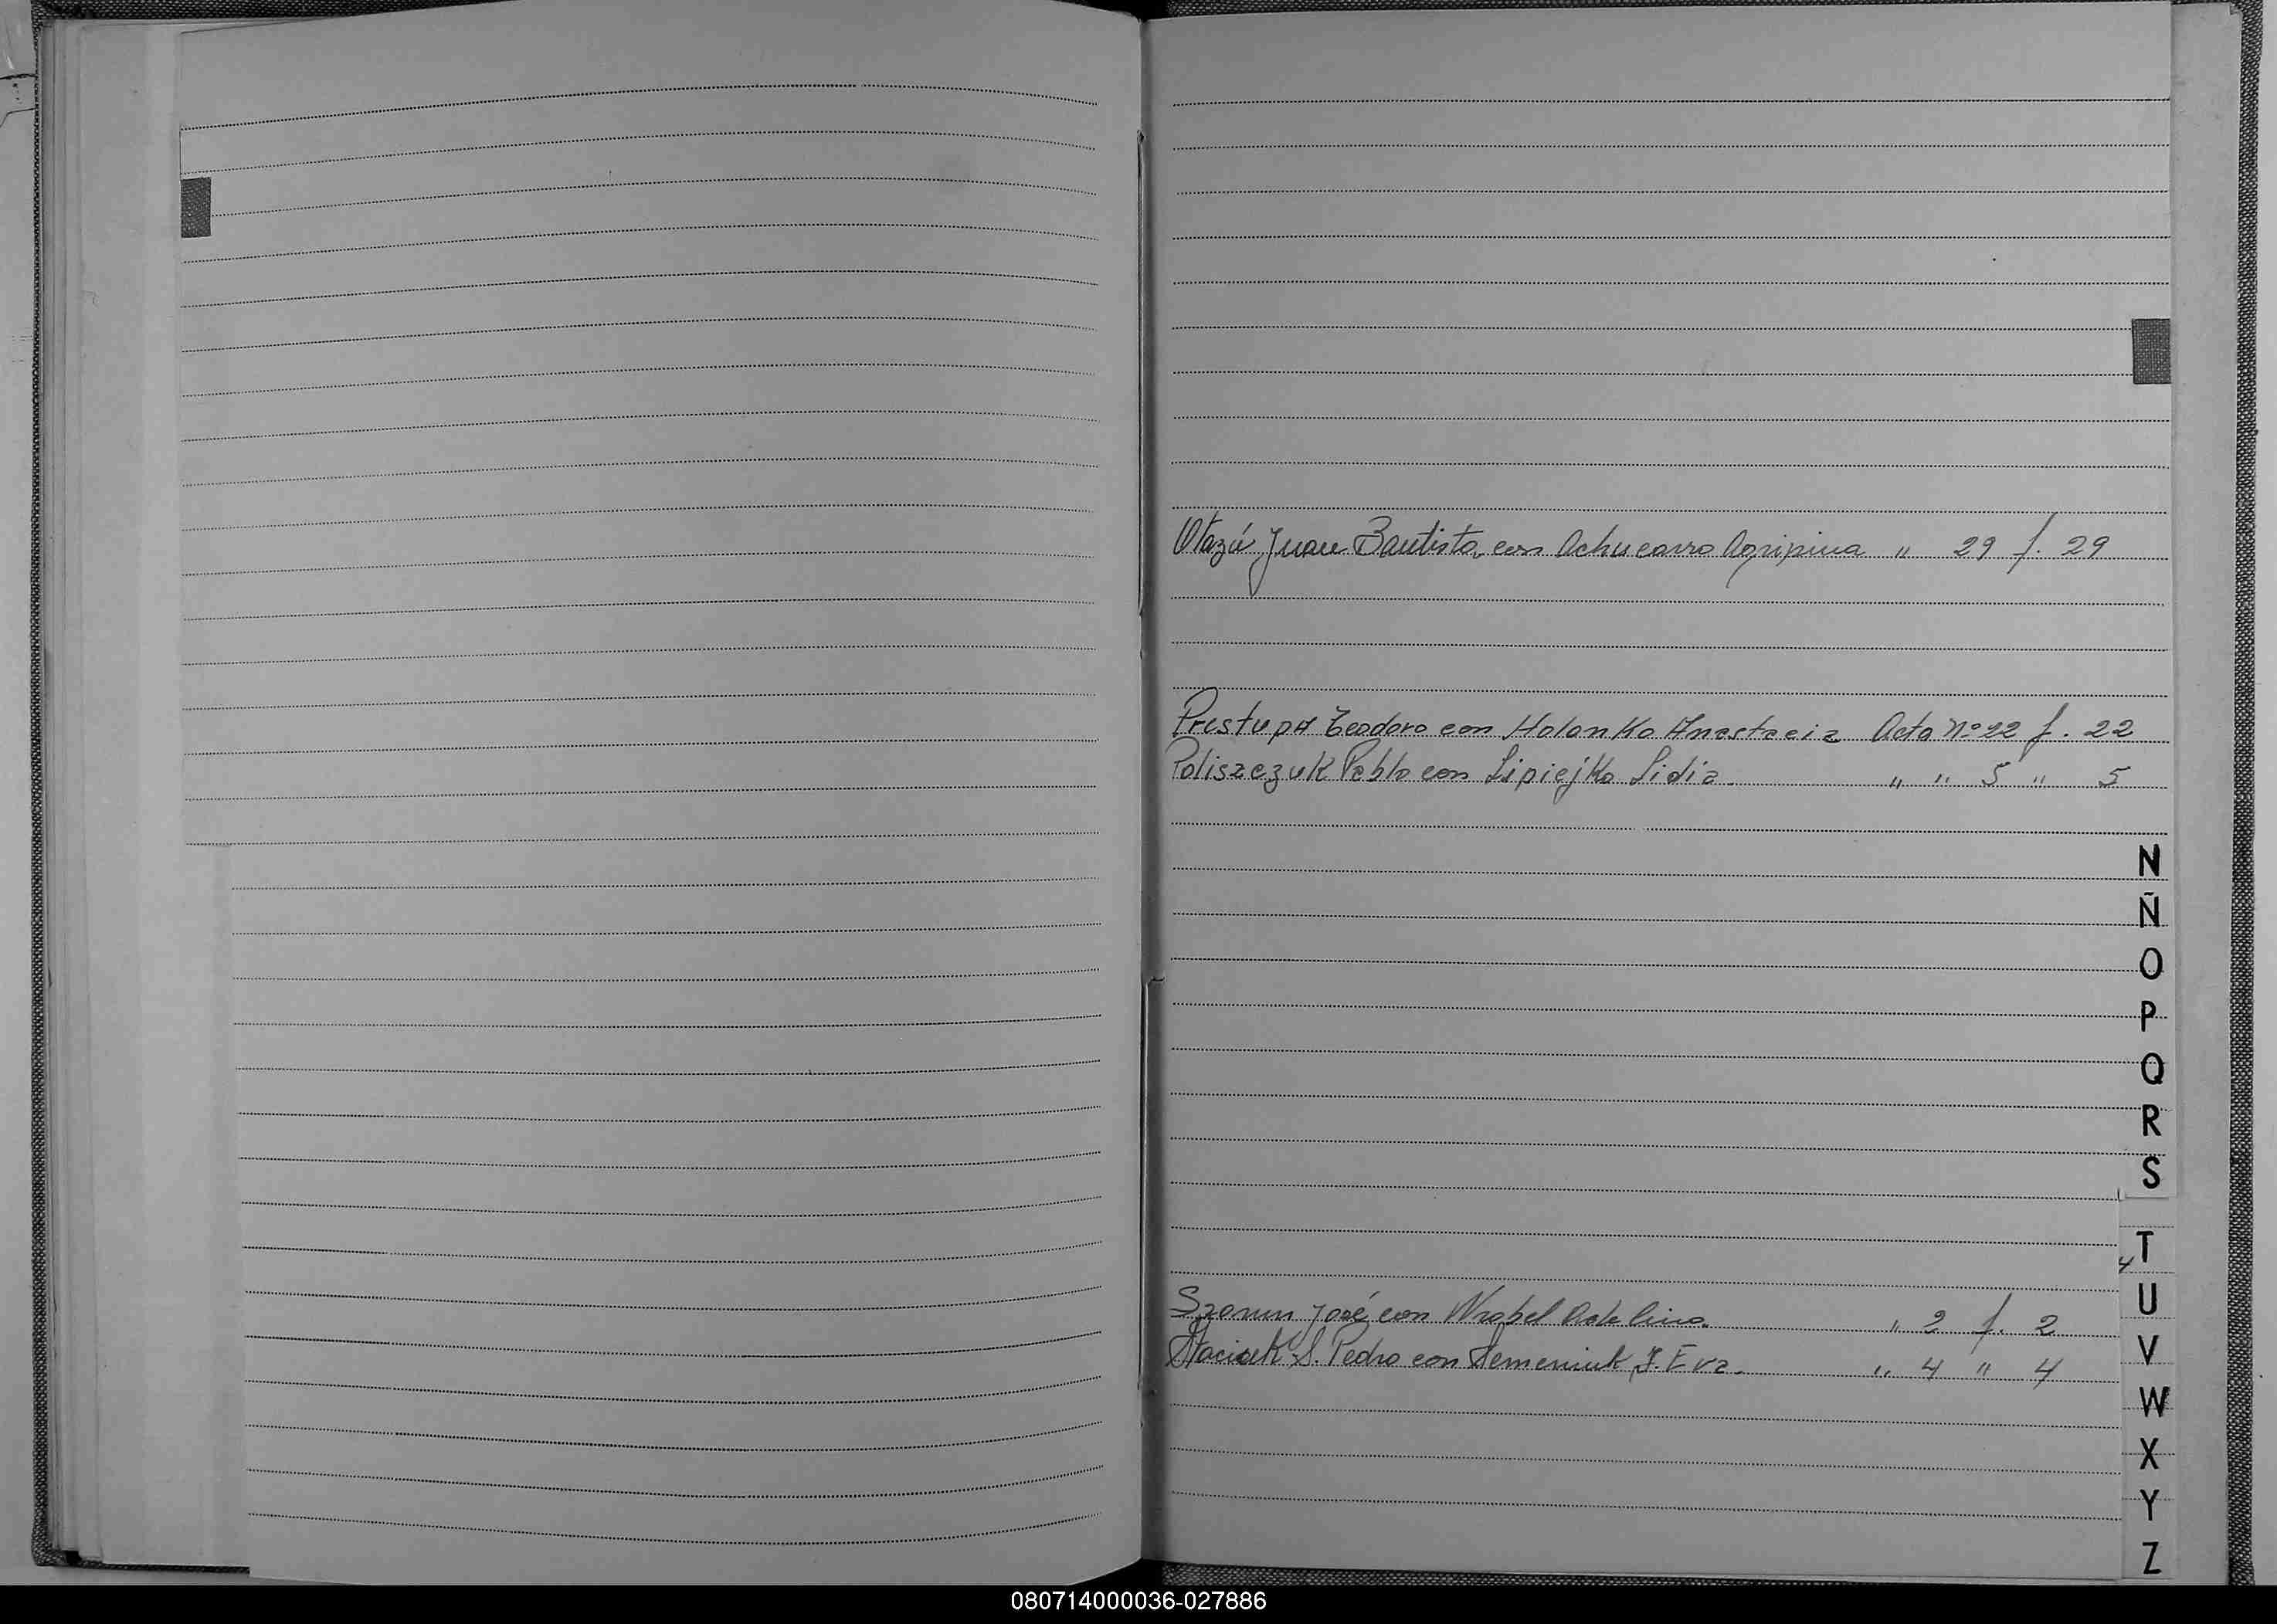 Otazú Juan Bautista con Achucarro Agripina " 29 f. 29
Prestupa Teodoro con Holonko Anastacia Acta Nº 22 f. 22
Poliszczuk Pablo con Lipiejko Lidia. " " 5 " 5
N
Ñ
O
P
Q
R
S
T
4
U
José con Wrobel Adelina. " 2 f. 2
V
S. Pedro con Semeniuk J. Eva. " 4 " 4
W
X
Y
Z
080714000036-027886